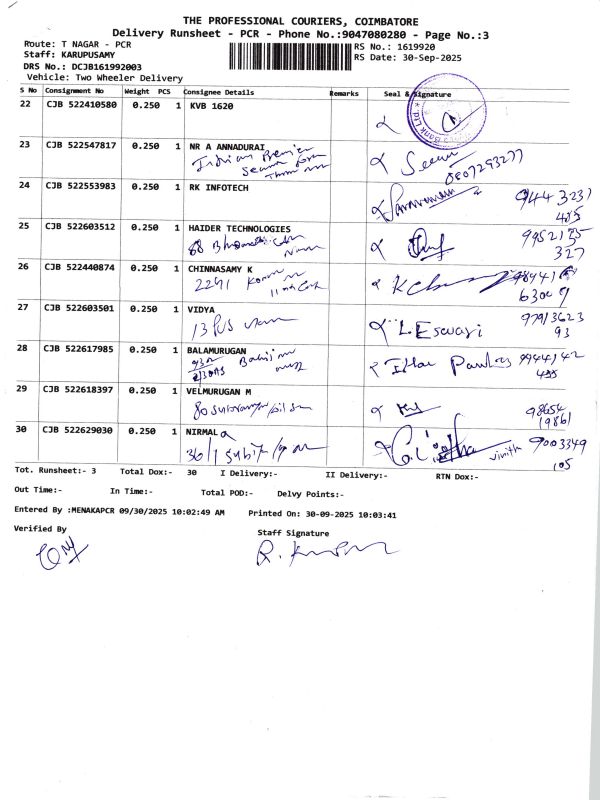 THE PROFESSIONAL COURIERS, COIMBATORE
Delivery Runsheet - PCR - Phone No.:9047080280 - Page No.:3
Route: T NAGAR - PCR
RS No.: 1619920
Staff: KARUPUSAMY
RS Date: 30-Sep-2025
DRS No.: DCJB161992003
Vehicle: Two Wheeler Delivery
S No Consignment No Weight PCS Consignee Details Remarks Seal & Signature
22 CJB 522410580 0.250 1 KVB 1620
23 CJB 522547817 0.250 1 NR A ANNADURAI
Indian Premier
0807293277
24 CJB 522553983 0.250 1 RK INFOTECH
Saravanan
25 CJB 522603512 0.250 1 HAIDER TECHNOLOGIES
88
327
26 CJB 522440874 0.250 1 CHINNASAMY K
2291
27 CJB 522603501 0.250 1 VIDYA
L. Eswari 97913623
93
28 CJB 522617985 0.250 1 BALAMURUGAN
29 CJB 522618397 0.250 1 VELMURUGAN M
80
98654
19861
30 CJB 522629030 0.250 1 NIRMALa
36/1
vinith 9003349
105
Tot. Runsheet:- 3 Total Dox:- 30 I Delivery:- II Delivery:- RTN Dox:-
Out Time:- In Time:- Total POD:- Delvy Points:-
Entered By :MENAKAPCR 09/30/2025 10:02:49 AM Printed On: 30-09-2025 10:03:41
Verified By Staff Signature